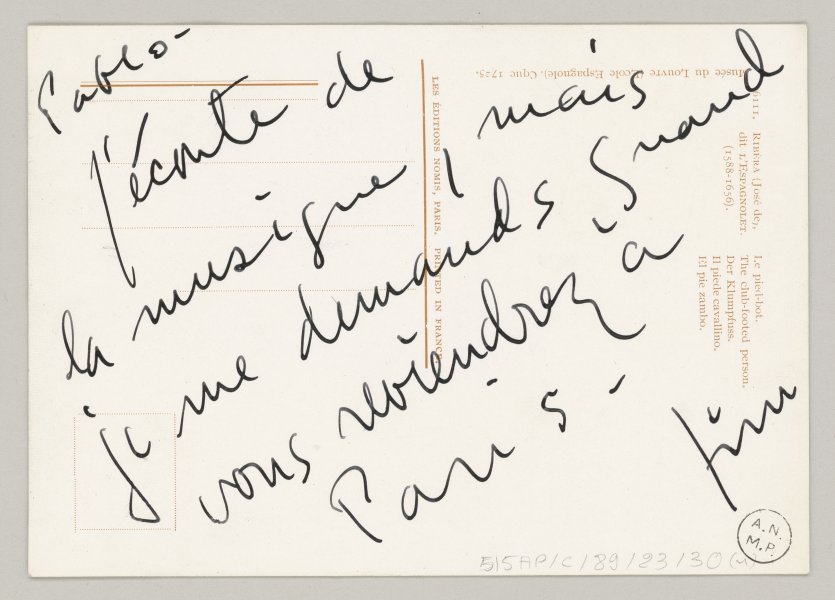 Pablo -
J'écoute de
la musique, mais
je me demande quand
vous reviendrez à
Paris -
Jim
Musée du Louvre (École Espagnole). Cque 1725.
RIBERA (José de),
dit L'ESPAGNOLET.
(1588-1656).
Le pied-bot.
The club-footed person.
Der Klumpfuss.
Il piede cavallino.
El pie zambo.
LES ÉDITIONS NOMIS, PARIS. PRINTED IN FRANCE.
A.N.
M.P.
515AP/C/89/23/30(4)